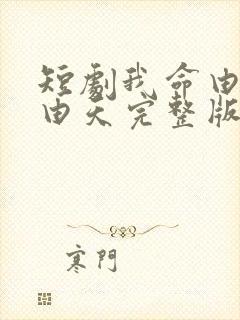 短劇我命由
由天完整版
寒門